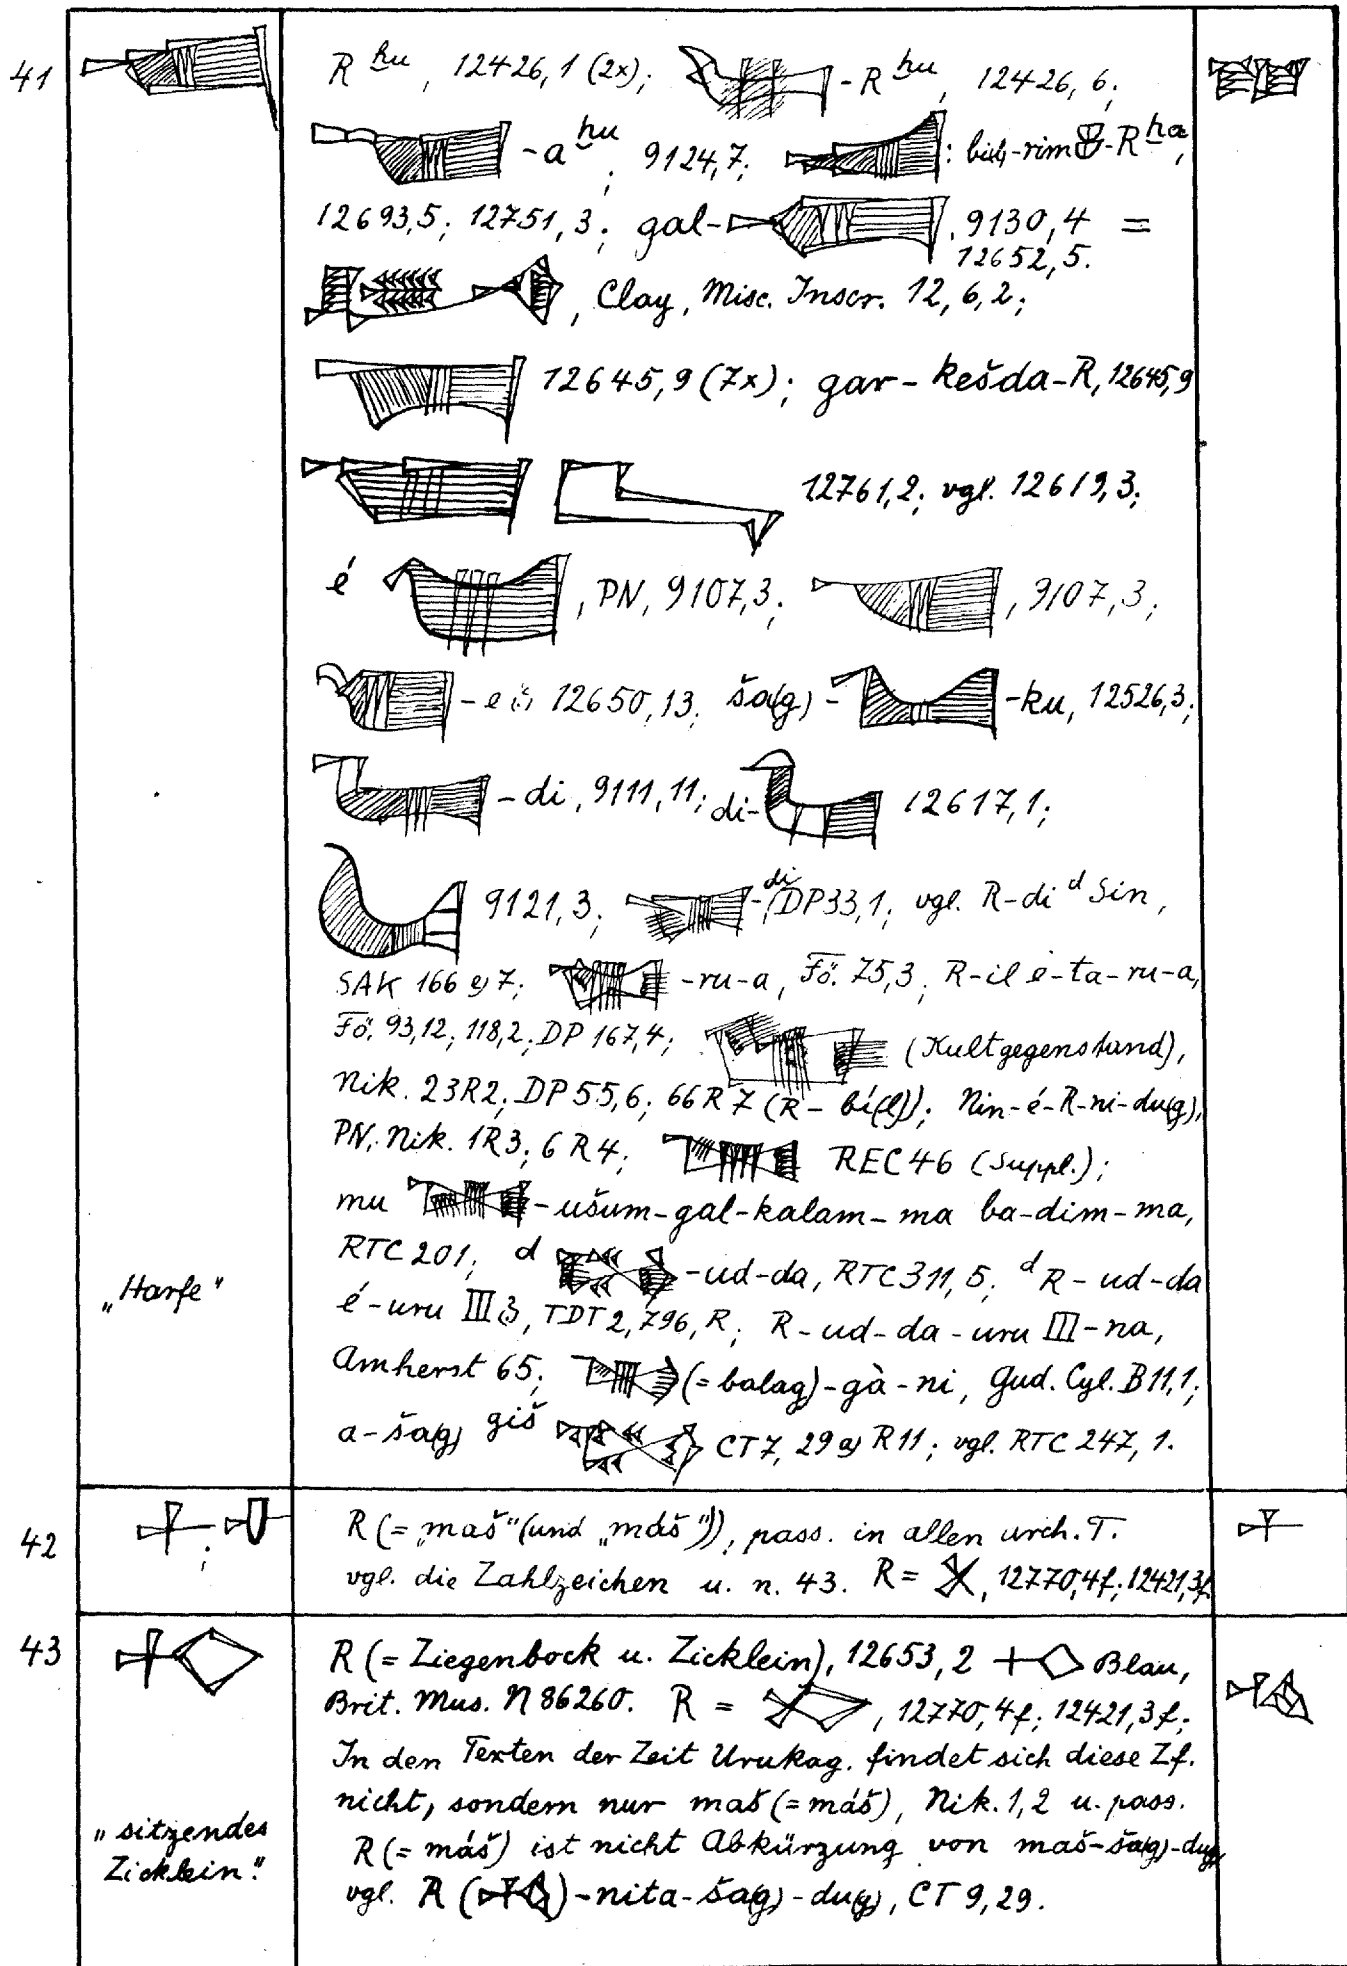 41 R ḫu, 12426,1 (2x); -R ḫu, 12426, 6;
-a ḫu, 9124,7; : -rim -R ḫa,
12693,5; 12751,3; gal- , 9130,4 =
12652,5.
, Clay, Misc. Inscr. 12, 6, 2;
12645,9 (7x); gar-kešda-R, 12645,9
12761,2; vgl. 12619,3;
é , PN, 9107,3; , 9107,3;
12650,13; ša(g)- -ku, 12526,3;
-di, 9111,11; di- 12617,1;
9121,3; -di, DP33,1; vgl. R-di d Sin,
SAK 166 e) 7; -ru-a, Fö. 75,3; R-il é-ta-ru-a,
Fö. 93,12; 118,2; DP 167,4; (Kultgegenstand),
Nik. 23R2; DP55,6; 66R7 (R-bí(l)); Nin-é-R-ni-du(g),
PN, Nik. 1R3; 6R4; REC46 (Suppl.);
mu -ušum-gal-kalam-ma ba-dim-ma,
RTC 201; d -ud-da, RTC311, 5; d R-ud-da
„Harfe"
é-uru III, TDT2, 796, R; R-ud-da-uru III-na,
Amherst 65; (=balag)-gà-ni, Gud. Cyl. B11,1;
a-ša(g) giš CT7, 29 a) R11; vgl. RTC 247, 1.
42 R (= „maš" (und „máš")), pass. in allen arch. T.
vgl. die Zahlzeichen u. n. 43. R = , 12770,4f; 12421,3f.
43 R (= Ziegenbock u. Zicklein), 12653,2 Blau,
Brit. Mus. N 86260. R = , 12770,4f; 12421,3f;
In den Texten der Zeit Urukag. findet sich diese Zf.
nicht, sondern nur maš (=máš), Nik. 1,2 u. pass.
„sitzendes
Zicklein."
R (= máš) ist nicht Abkürzung von maš-ša(g)-du(g),
vgl. R ( )-nita-ša(g)-du(g), CT 9,29.